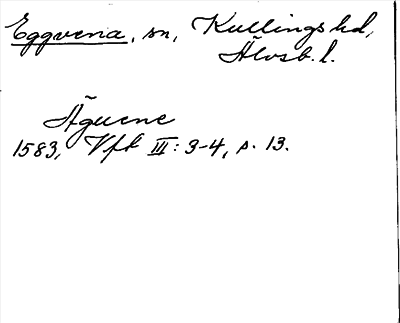 Eggvena, sn, Kullings hd,
Älvsb. l.
Äguene
1583, Vft III: 3-4, s. 13.